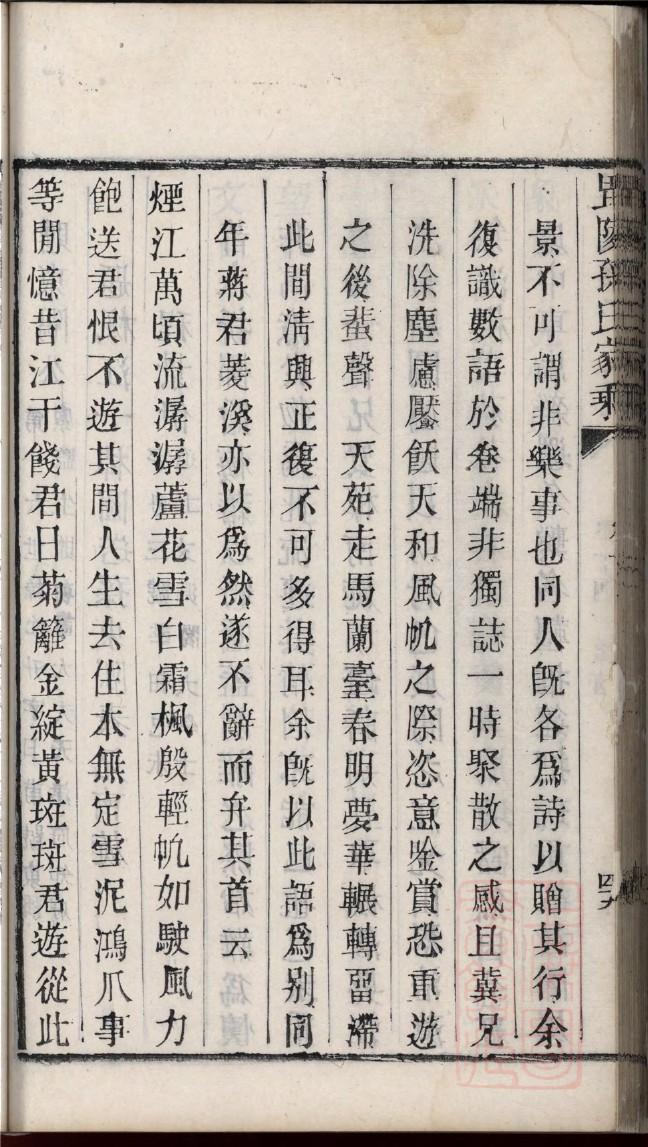 毘陵孫氏家乘
景不可謂非樂事也同人旣各爲詩以贈其行余
復識數語於卷端非獨誌一時聚散之感且冀兄
洗除塵慮饜飫天和風帆之際恣意鑒賞恐重遊
之後蜚聲 天苑走馬蘭臺春明夢華輾轉畱滯
此間淸興正復不可多得耳余旣以此語爲别同
年蔣君菱溪亦以爲然遂不辭而弁其首云
煙江萬頃流潺潺蘆花雪白霜楓殷輕帆如駛風力
飽送君恨不遊其間人生去住本無定雪泥鴻爪事
等閒憶昔江干餞君日菊籬金綻黃斑斑君遊從此